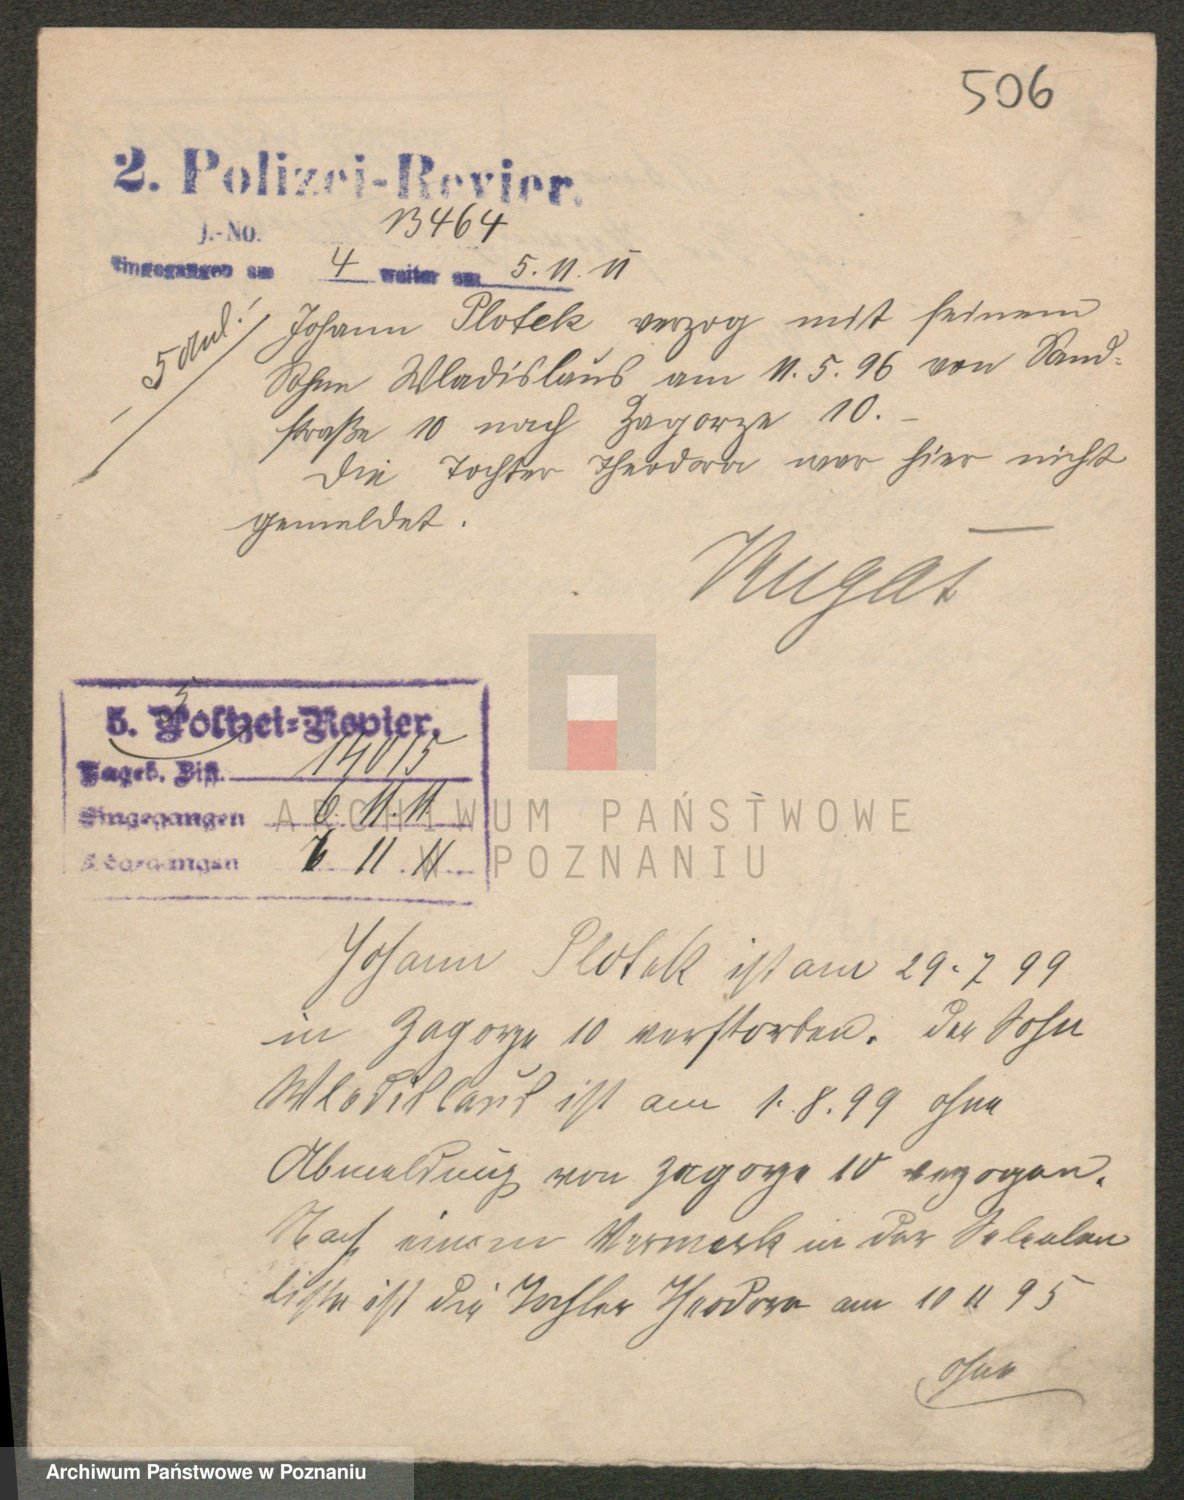 506
2. Polizei-Revier.
J.-No. B464
Eingegangen am 4 weiter am 5. 11. 11
5 Anl.
Johann Plotek verzog mit seinem
Sohne Wladislaus am 11. 5. 96 von Sand-
straße 10 nach Zagorze 10. –
Die Tochter Theodora war hier nicht
gemeldet.
5
5. Polizei-Revier.
Tageb.
Eingegangen 6. 11. 11
11. 11
ARCHIWUM PAŃSTWOWE
W POZNANIU
Johann Plotek ist am 29. 7 99
in Zagorze 10 verstorben. Der Sohn
Wladislaus ist am 1. 8. 99 ohne
Abmeldung von Zagorze 10 verzogen.
Nach einem Vermerk in der
Liste ist die Tochter Theodora am 10 11 95
ohne
Archiwum Państwowe w Poznaniu